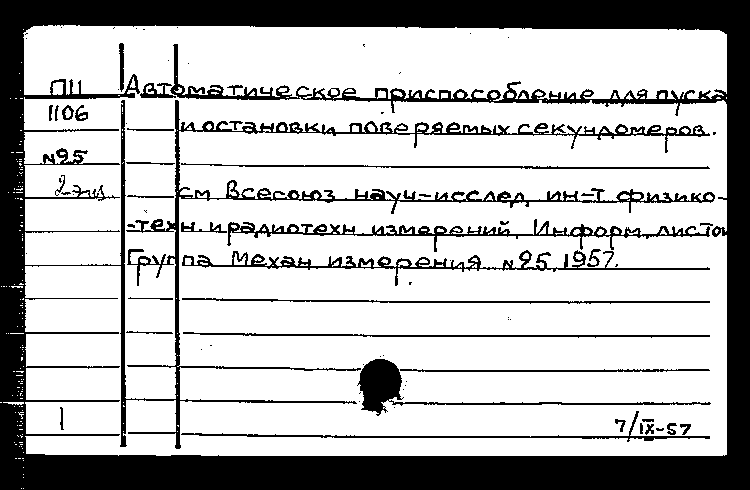 П11
1106
№25
2 экз.
Автоматическое приспособление для пуска
и остановки поверяемых секундомеров.
см Всесоюз науч-исслед. ин-т физико-
-техн. и радиотехн измерений. Информ. листок
Группа Механ измерения №25, 1957.
1.
1
7/IX-57